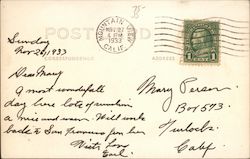 35
MOUNTAIN VIEW
NOV 27
6 PM
1933
CALIF.
POST CARD
CORRESPONDENCE
ADDRESS
1 CENT 1
Sunday
Nov 26, 1933
Dear Mary
a most wonderful
day here lots of sunshine
a mis and warm. Will write
back to San Francisco for him
With Love
Earl.
Mary Person
Box 573
Turlock
Calif.